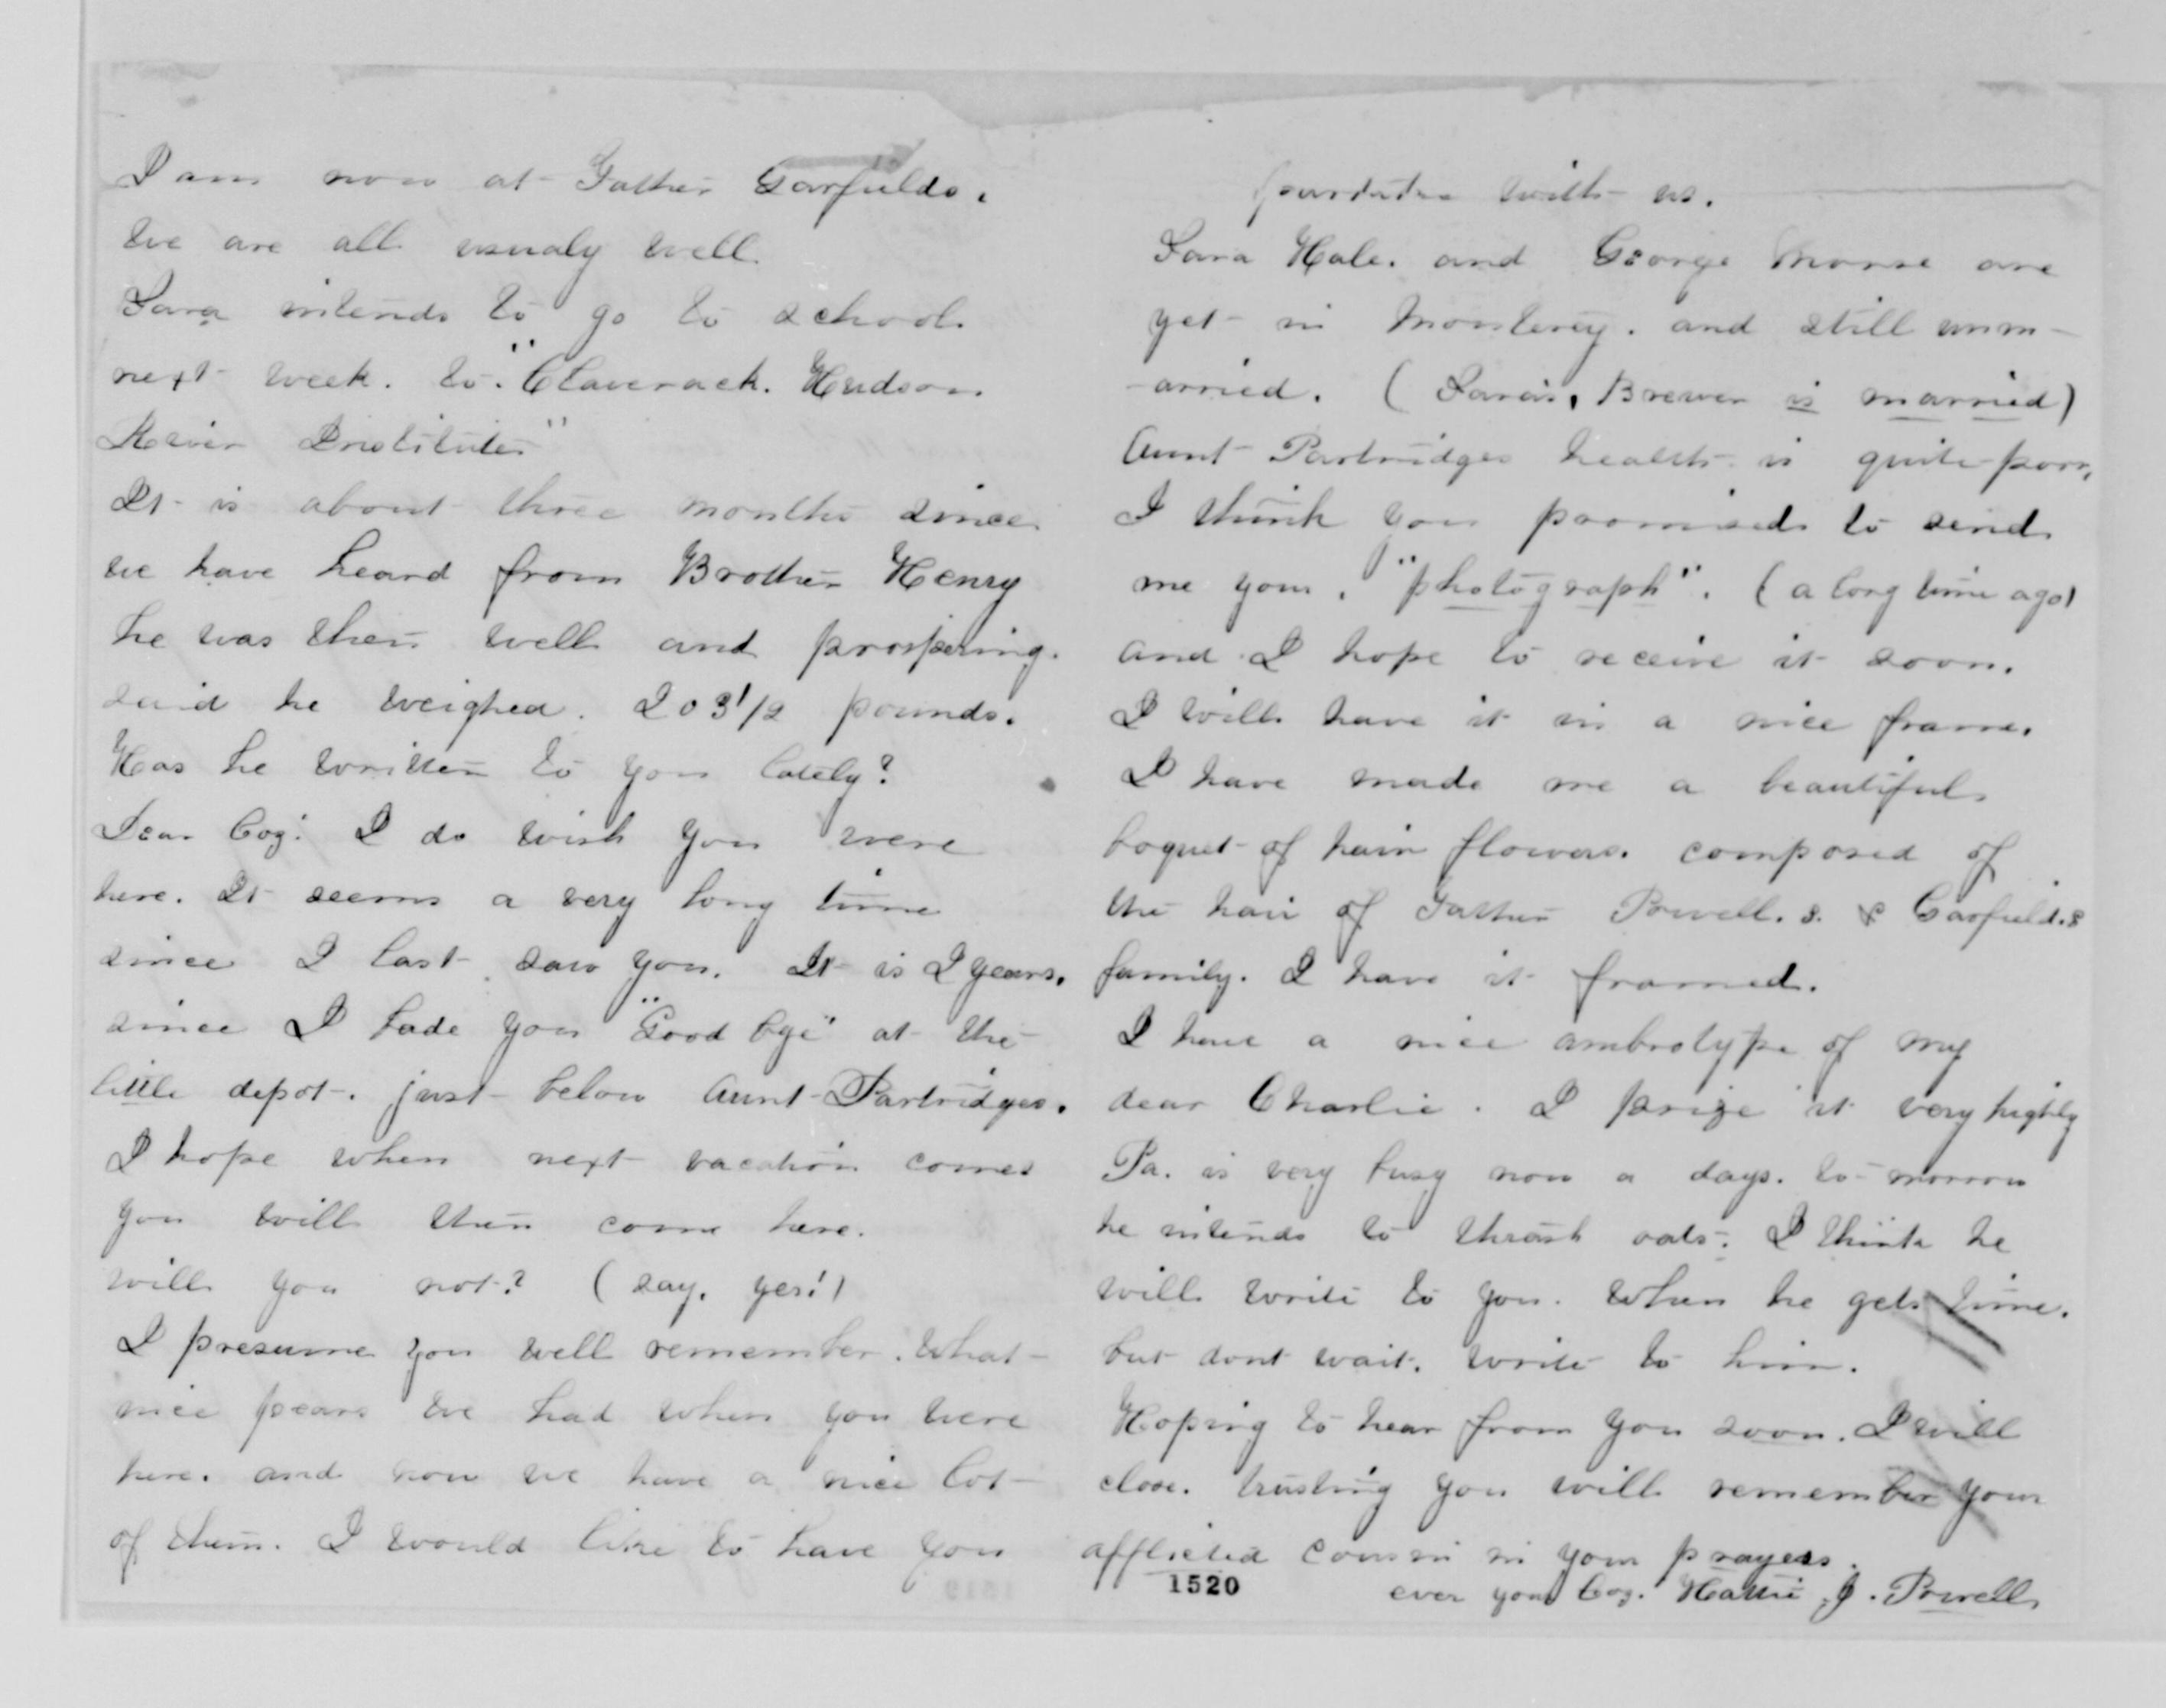 I am now at Father Garfields.
We are all usualy well.
Sara intends to go to school
next week. to. "Claverack. Hudson
River Institute"
It is about three months since
we have heard from Brother Henry
he was then well and prospering.
said he weighed. 203 1/2 pounds.
Has he written to you lately?
Dear Coz: I do wish you were
here. It seems a very long time
since I last saw you. It is 2 years.
since I bade you "Good bye" at the
little depot. just below Aunt Partridges.
I hope when next vacation comes
you will then come here.
will you not? (say, yes!)
I presume you well remember. what
nice pears we had when you were
here. and now we have a nice lot
of them. I would like to have you
partake with us.
Sara Hale. and George Morse are
yet in Monterey. and still unm-
-arried. (Brewer is married)
Aunt Partridges health is quite poor,
I think you promised to send
me your. "photograph". (a long time ago)
and I hope to receive it soon.
I will have it in a nice frame.
I have made me a beautiful
boquet of hair flowers. composed of
the hair of Father Powell.s. & Garfield.s
family. I have it framed.
I have a nice ambrotype of my
dear Charlie. I prize it very highly
Pa. is very busy now a days. to-morrow
he intends to thrash oats. I think he
will write to you. when he gets time.
but dont wait. write to him.
Hoping to hear from you soon. I will
close. trusting you will remember your
afflicted cousin in your prayers.
ever your Coz. Hattie J. Powell
1520